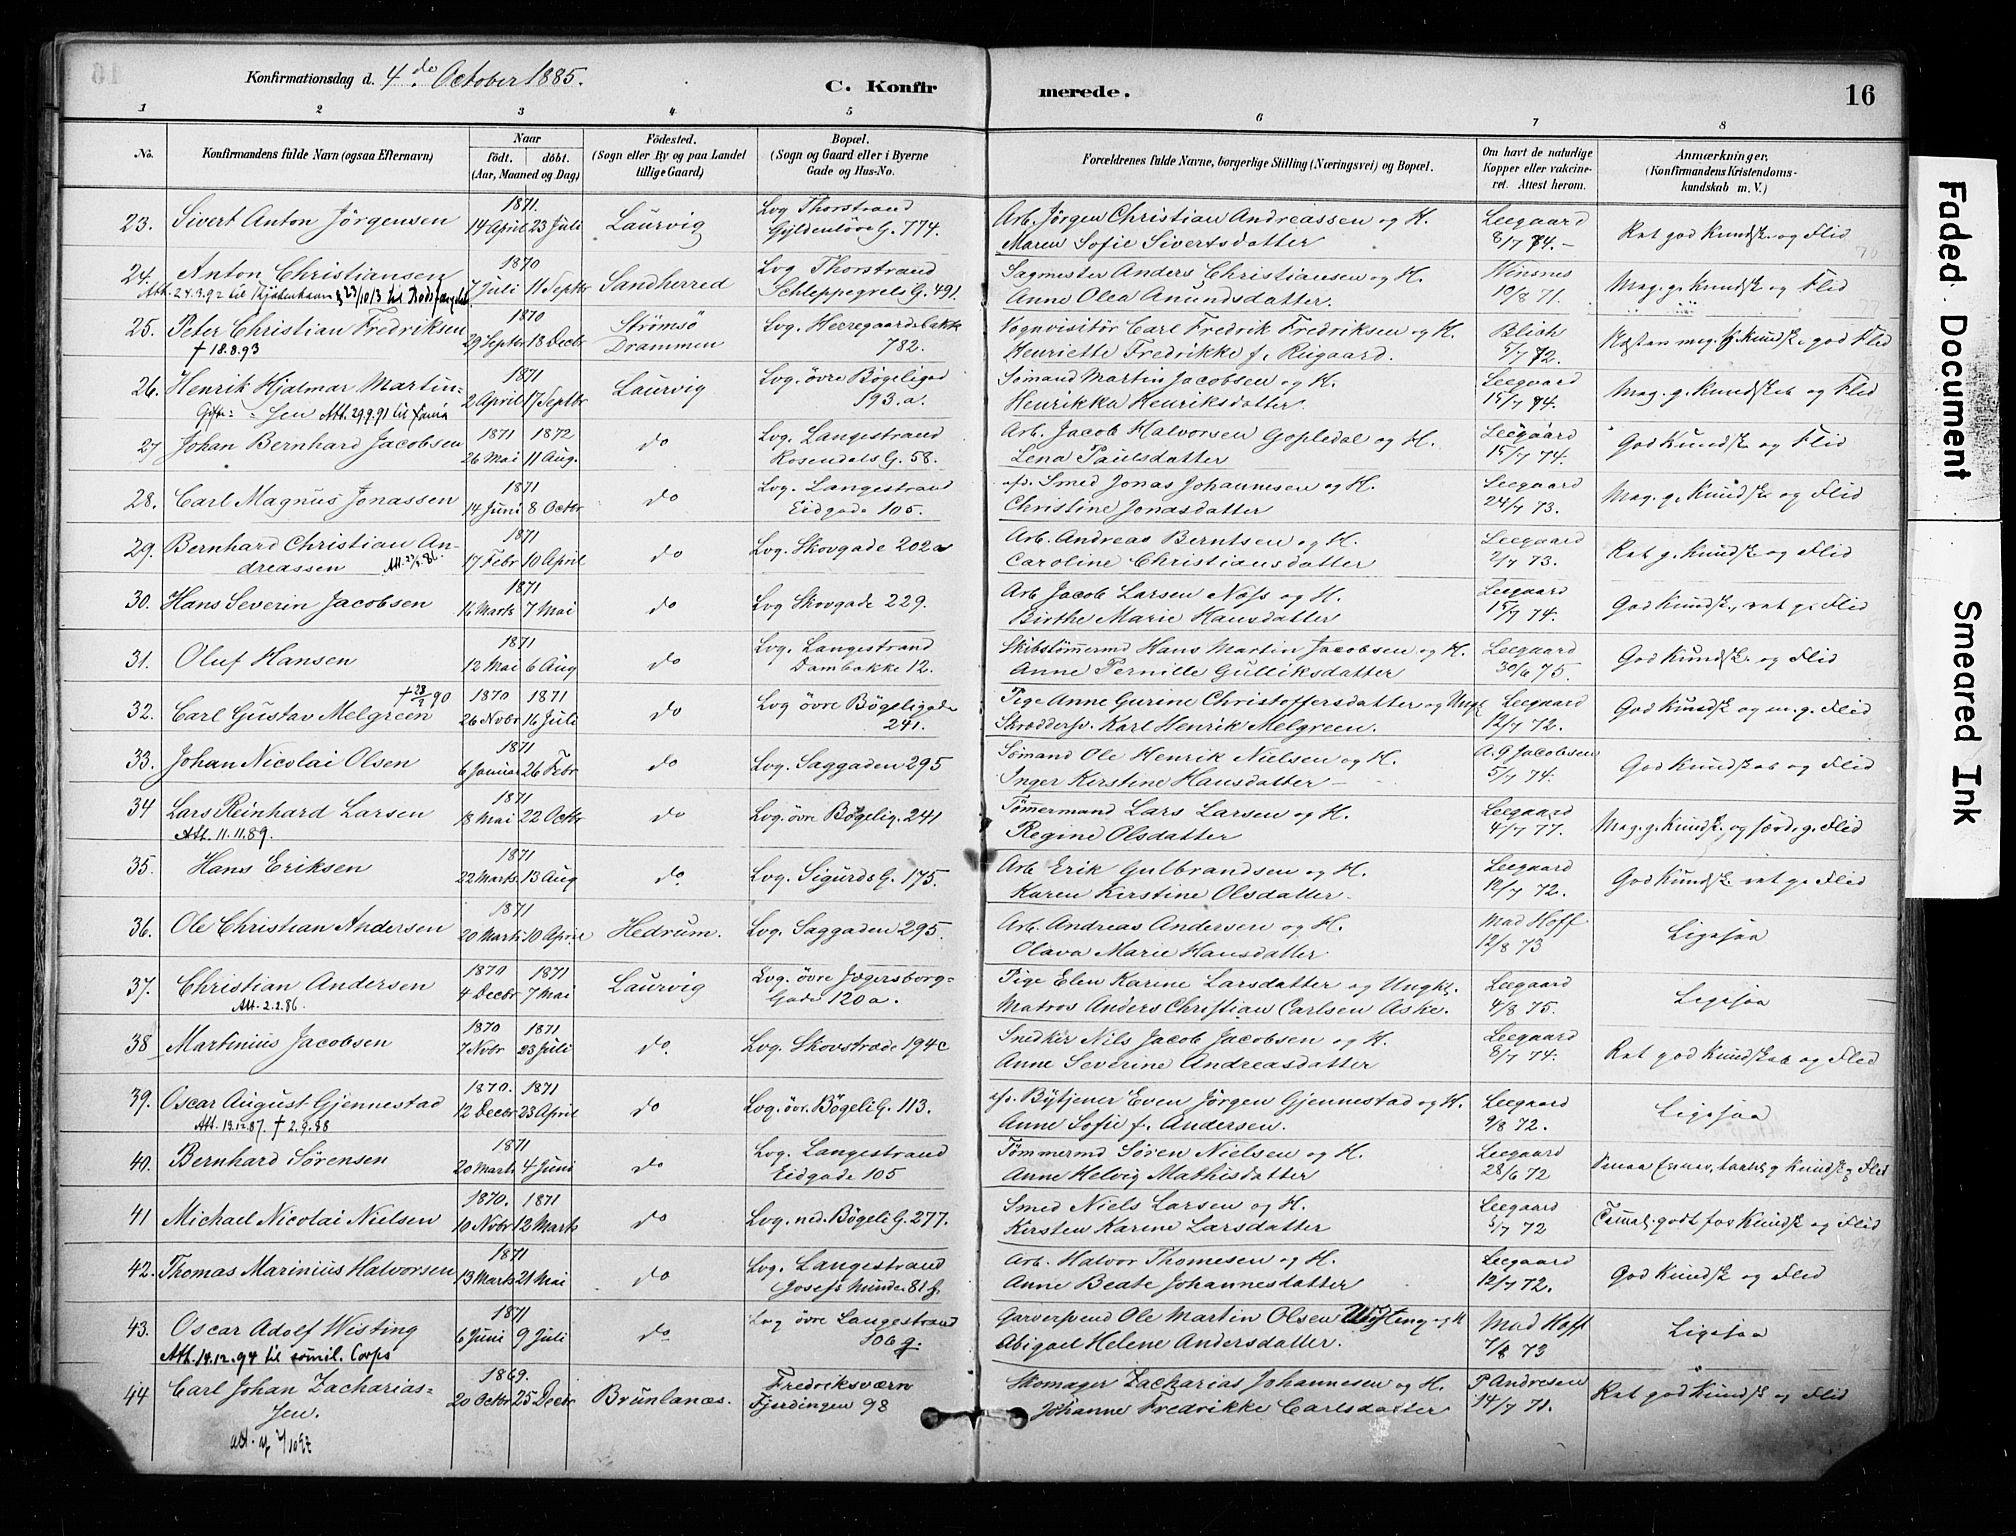 Konfirmationsdag d. 4de October 1885.
C. Konfir merede. 16
1 2 3 4 5 6 7 8
No. Konfirmandens fulde Navn (ogsaa Efternavn) Naar födt. döbt. (Aar, Maaned og Dag) Födested. (Sogn eller By og paa Landet tillige Gaard) Bopæl. (Sogn og Gaard eller i Byerne Gade og Hus-No.) Forældrenes fulde Navne, borgerlige Stilling (Næringsvei) og Bopæl. Om havt de naturlige Kopper eller vakcineret. Attest herom. Anmærkninger. (Konfirmandens Kristendomskundskab m. V.)
1871. Lvg Thorstrand Arb. Jörgen Christian Andreassen og H. Leegaard
23. Sivert Anton Jörgensen 14 April 23 Juli Laurvig Gyldenlöve G. 774. Maren Sofie Sivertsdatter 8/7 74. – Ret god Kundsk. og Flid
24. Anton Christiansen 1870 Lvg Thorstrand Sagmester Anders Christiansen og H. Vinsnes
Att. 24.3.92 til Kjöbenhavn 7 Juli 11 Septbr Sandherred Schleppegrels G. 491. Anne Olea Amundsdatter. 10/8 71. Meg. g. Kundsk og Flid
25. Peter Christian Fredriksen 1870 Strömsö Lvg. Herregaardsbakke Vognvisitör Carl Fredrik Fredriksen og H. Blich
† 18.8.93 29 Septbr 18 Decbr Drammen 782. Henriette Fredrikke f. Riigaard. 5/7 72. Næsten meg. g. Kundsk. god Flid
26. Henrik Hjalmar Martin= 1871 Laurvig Lvg. övre Bögeligad Sömand Martin Jacobsen og H. Leegaard
sen Att. 29.9.91 til 2 April 17 Septbr 193. a. Henrikka Henriksdatter. 15/7 74. Meg. g. Kundskab og Flid
27 Johan Bernhard Jacobsen 1871 1872 do Lvg. Langestrand Arb. Jacob Halvorsen Gopledal og H. Leegaard
26 Mai 11 Aug. Rosendals G. 58. Lena Paulsdatter 15/7 74. God Kundsk og Flid
28. Carl Magnus Jonassen 1871 do Lvg. Langestrand afs. Smed Jonas Johannesen og H. Leegaard
14 Juni 8 Octbr Eidgade 105. Christine Jonasdatter 24/7 73. Meg. g. Kundsk og Flid
29. Bernhard Christian An- 1871 Lvg. Skovgade 202a Arb. Andreas Berntsen og H. Leegaard
dreassen 17 Febr 10 April do Caroline Christiansdatter 2/7 73. Ret g. Kundsk og Flid
30. Hans Severin Jacobsen 1871 do Lvg Skovgade 229. Arb. Jacob Larsen Næss og H. Leegaard
16 Marts 7 Mai Birthe Marie Hansdatter 15/7 74. God Kundsk, ret g. Flid
31. Oluf Hansen 1871 Lvg. Langestrand Skibstömmermd Hans Martin Jacobsen og H. Leegaard
12 Mai 6 Aug do Dambakke 12. Anne Pernille Gulliksdatter 30/6 75. God Kundsk. og Flid
32. Carl Gustav Melgreen 1870 1871 do Lvg övre Bögeligade Pige Anne Gurine Christoffersdatter og Ungk Leegaard
26 Novbr 16 Juli 241. Skræddersv. Karl Henrik Melgreen. 12/7 72. God Kundsk og m. g. Flid
33. Johan Nicolai Olsen 1871 do Lvg. Saggaden 295 Sömand Ole Henrik Nielsen og H. A. G Jacobsen
6 Januar 26 Febr Inger Kirstine Hansdatter – 5/7 74. God Kundskab og Flid
34 Lars Reinhard Larsen 1871 do Lvg. övre Bögelig. 241 Tömmermand Lars Larsen og H. Leegaard
Att. 11.11.89. 18 Mai 22 Octbr Regine Olsdatter 4/7 77. Meg. g. Kundsk. og særd. g. Flid
35. Hans Eriksen 1871 do. Lvg. Sigurds G. 175. Arb. Erik Gulbrandsen og H. Leegaard
22 Marts 13 Aug Karen Kirstine Olsdatter. 12/7 72. God Kundsk ret g. Flid
36. Ole Christian Andersen 1871 Hedrum. Lvg. Saggaden 295. Arb. Andreas Andersen og H. Mad Hoff
20 Marts 10 April Olava Marie Hansdatter 12/8 73 Ligesaa
37. Christian Andersen 1870 1871 Laurvig Lvg. övre Jegersborg= Pige Elen Karine Larsdatter og Ungk. Leegaard
Att. 2.2.86. 4 Decbr 7 Mai Gade 120a. Matros Anders Christian Carlsen Aske. 4/8 75. Ligesaa
38 Martinius Jacobsen 1870 1871 do. Lvg. Skovstrade 194c Snedker Nils Jacob Jacobsen og H. Leegaard
7 Novbr 23 Juli Anne Severine Andreasdatter 8/7 74. Ret god Kundskab og Flid
39. Oscar August Gjennestad 1870. 1871 do Lvg. övr. Bögeli G. 113. afs. Bytjener Even Jörgen Gjennestad og H. Leegaard
Att. 13.12.87. † 2.9.88 12 Decbr 23 April Anne Sofie f. Andersen. 9/8 72. Ligesaa
40. Bernhard Sörensen 1871 do Lvg. Langestrand Tömmermd Sören Nielsen og H. Leegaard
20 Marts 4 Juni Eidgade 105 Anne Helvig Mathisdatter 28/6 72 Kundsk og Flid
41 Michael Nicolai Nielsen 1870. 1871 do Lvg. ned. Bögeli G. 277. Smed Niels Larsen og H. Leegaard
10 Novbr 12 Marts Kirsten Karine Larsdatter 5/7 72 Temel. godt for Kundsk og Flid
42. Thomas Marinius Halvorsen 1871 do Lvg. Langestrand Arb. Halvor Thomesen og H. Leegaard
13 Marts 21 Mai Josefs Minde 81 f. Anne Beate Johannesdatter 12/7 72. God Kundsk og Flid
43. Oscar Adolf Wisting 1871 do Lvg övre Langestrand Garversvend Ole Martin Olsen Wisting og H Mad Hoff
Att. 14.12.94 til sömil. Corps 6 Juni 9 Juli 106 g. Abigael Helene Andersdatter. 7/8 73 Ligesaa
44 Carl Johan Zacharias= 1869. Brunlanæs. Fredriksværn Skomager Zacharias Johannesen og H. P Andresen
sen. 20 Octbr 25 Decbr Fjerdingen 98 Johanne Fredrikke Carlsdatter 14/7 71. Ret god Kundsk og Flid
Faded Document
Smeared Ink